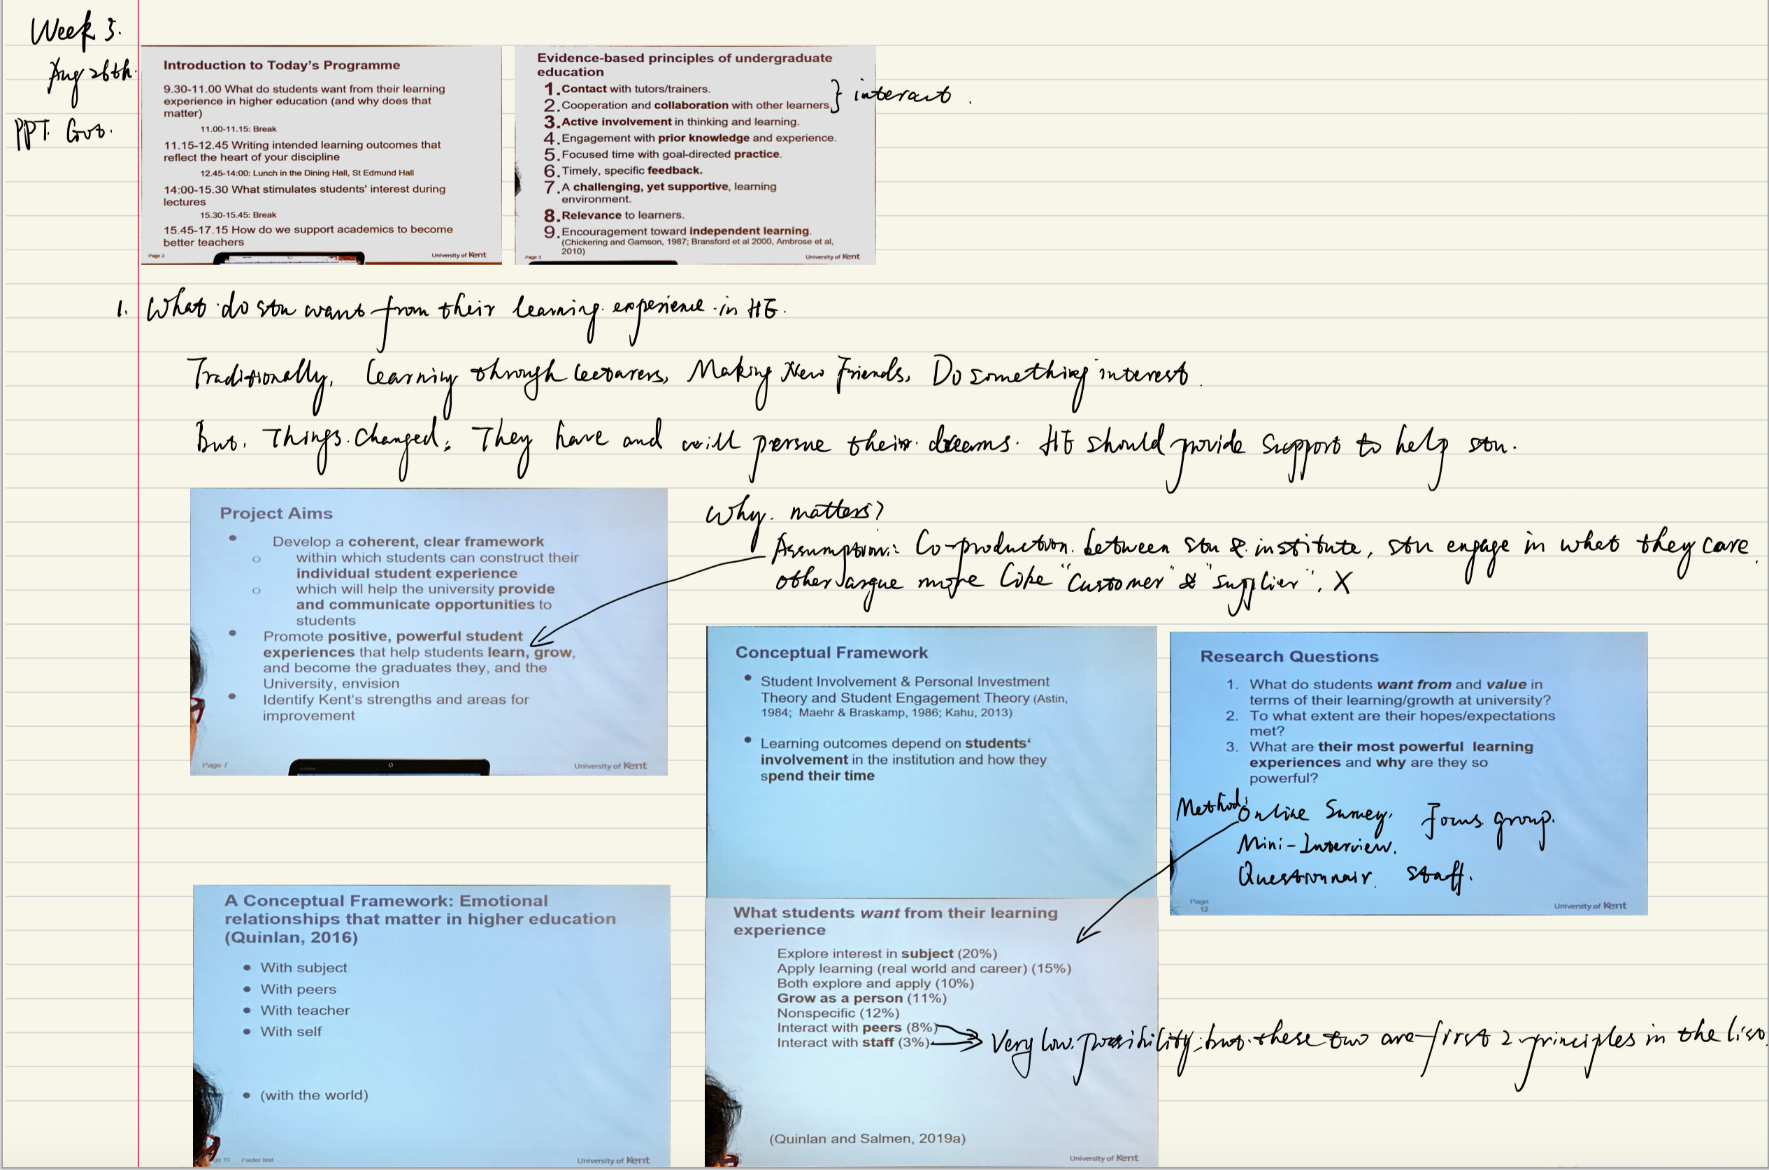 Week 3.
Aug 26th.
PPT. Got.
Introduction to Today's Programme
9.30-11.00 What do students want from their learning
experience in higher education (and why does that
matter)
11.00-11.15: Break
11.15-12.45 Writing intended learning outcomes that
reflect the heart of your discipline
12.45-14:00: Lunch in the Dining Hall, St Edmund Hall
14:00-15.30 What stimulates students' interest during
lectures
15.30-15.45: Break
15.45-17.15 How do we support academics to become
better teachers
Page 2
University of Kent
Evidence-based principles of undergraduate
education
1. Contact with tutors/trainers.
2. Cooperation and collaboration with other learners.
3. Active involvement in thinking and learning.
4. Engagement with prior knowledge and experience.
5. Focused time with goal-directed practice.
6. Timely, specific feedback.
7. A challenging, yet supportive, learning
environment.
8. Relevance to learners.
9. Encouragement toward independent learning.
(Chickering and Gamson, 1987; Bransford et al 2000, Ambrose et al,
2010)
Page 3
University of Kent
interact.
1. What do stu want from their learning experience in HE.
Traditionally, learning through lecturers, Making New Friends, Do something interest.
But. Things changed. They have and will persue their dreams. HE should provide support to help stu.
Project Aims
Develop a coherent, clear framework
within which students can construct their
individual student experience
which will help the university provide
and communicate opportunities to
students
Promote positive, powerful student
experiences that help students learn, grow,
and become the graduates they, and the
University, envision
Identify Kent's strengths and areas for
improvement
Page 7
University of Kent
Why matters?
Assumption: Co-production between stu & institute, stu engage in what they care.
other argue more like "customer" & "supplier". X
Conceptual Framework
Student Involvement & Personal Investment
Theory and Student Engagement Theory (Astin,
1984; Maehr & Braskamp, 1986; Kahu, 2013)
Learning outcomes depend on students'
involvement in the institution and how they
spend their time
Research Questions
1. What do students want from and value in
terms of their learning/growth at university?
2. To what extent are their hopes/expectations
met?
3. What are their most powerful learning
experiences and why are they so
powerful?
Method: Online Survey. Focus group.
Mini-Interview.
Questionnair. staff.
Page
12
University of Kent
A Conceptual Framework: Emotional
relationships that matter in higher education
(Quinlan, 2016)
With subject
With peers
With teacher
With self
(with the world)
Footer text
University of Kent
What students want from their learning
experience
Explore interest in subject (20%)
Apply learning (real world and career) (15%)
Both explore and apply (10%)
Grow as a person (11%)
Nonspecific (12%)
Interact with peers (8%)
Interact with staff (3%)
Very low possibility, but these two are first 2 principles in the list.
(Quinlan and Salmen, 2019a)
University of Kent